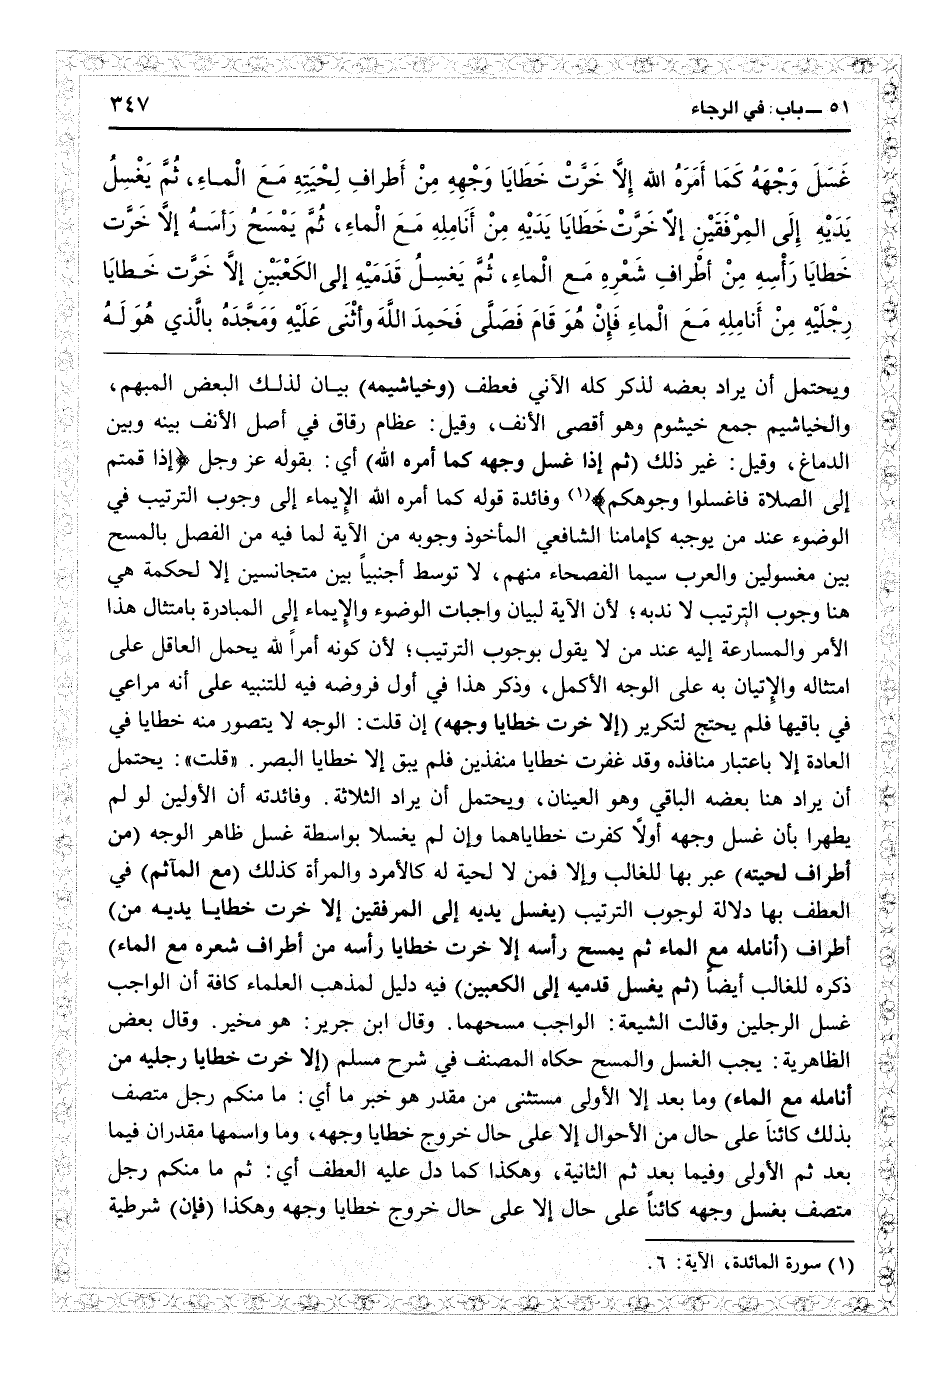 ٥١ ـ باب: في الرجاء
٣٤٧
غَسَلَ وَجْهَهُ كَمَا أَمَرَهُ الله إِلَّا خَرَّتْ خَطَايَا وَجْهِهِ مِنْ أَطرافِ لِحْيَتِهِ مَـعَ الْماءِ، ثُمَّ يَغْسِلُ
يَدَيْهِ إِلَى المِرْفَقَيْنِ إلاّ خَرَّتْ خَطَايَا يَدَيْهِ مِنْ أَنَامِلِهِ مَـعَ الْماءِ، ثُمَّ يَمْسَحُ رَأسَـهُ إلَّا خَرَّت
خَطايَا رَأْسِهِ مِنْ أطْرافِ شَعْرِهِ مَـعِ الْماءِ، ثُمَّ يَغسِلُ قَدَمَيْهِ إلى الكَعْبَيْنِ إلَّا خَرَّت خَـطايَا
رِجْلَيْهِ مِنْ أَنامِلِهِ مَـعَ الْماءِ فَإِنْ هُوَ قَامَ فَصَلَّى فَحَمِدَ اللَّهَ وأثْنَى عَلَيْهِ وَمَجَّدَهُ بالَّذي هُوَ لَـهُ
ويحتمل أن يراد بعضه لذكر كله الآني فعطف (وخياشيمه) بيـان لذلـك البعض المبهم،
والخياشيم جمع خيشوم وهو أقصى الأنف، وقيل: عظام رقاق في أصل الأنف بينه وبين
الدماغ، وقيل: غير ذلك (ثم إذا غسل وجهه كما أمره الله) أي: بقوله عز وجل ﴿إذا قمتم
إلى الصلاة فاغسلوا وجوهكم﴾(١) وفائدة قوله كما أمره الله الإيماء إلى وجوب الترتيب في
الوضوء عند من يوجبه كإمامنا الشافعي المأخوذ وجوبه من الآية لما فيه من الفصل بالمسح
بين مغسولين والعرب سيما الفصحاء منهم، لا توسط أجنبياً بين متجانسين إلا لحكمة هي
هنا وجوب الترتيب لا ندبه؛ لأن الآية لبيان واجبات الوضوء والإيماء إلى المبادرة بامتثال هذا
الأمر والمسارعة إليه عند من لا يقول بوجوب الترتيب؛ لأن كونه أمراً لله يحمل العاقل على
امتثاله والإتيان به على الوجه الأكمل، وذكر هذا في أول فروضه فيه للتنبيه على أنه مراعي
في باقيها فلم يحتج لتكرير (إلا خرت خطايا وجهه) إن قلت: الوجه لا يتصور منه خطايا في
العادة إلا باعتبار منافذه وقد غفرت خطايا منفذين فلم يبق إلا خطايا البصر. «قلت»: يحتمل
أن يراد هنا بعضه الباقي وهو العينان، ويحتمل أن يراد الثلاثة. وفائدته أن الأولين لو لم
يطهرا بأن غسل وجهه أولاً كفرت خطاياهما وإن لم يغسلا بواسطة غسل ظاهر الوجه (من
أطراف لحيته) عبر بها للغالب وإلا فمن لا لحية له كالأمرد والمرأة كذلك (مع المآثم) في
العطف بها دلالة لوجوب الترتيب (يغسل يديه إلى المرفقين إلا خرت خطايـا يديـه من)
أطراف (أنامله مع الماء ثم يمسح رأسه إلا خرت خطايا رأسه من أطراف شعره مع الماء)
ذكره للغالب أيضاً (ثم يغسل قدميه إلى الكعبين) فيه دليل لمذهب العلماء كافة أن الواجب
غسل الرجلين وقالت الشيعة: الواجب مسحهما. وقال ابن جرير: هو مخير. وقال بعض
الظاهرية: يجب الغسل والمسح حكاه المصنف في شرح مسلم (إلا خرت خطايا رجليه من
أنامله مع الماء) وما بعد إلا الأولى مستثنى من مقدر هو خبر ما أي: ما منكم رجل متصف
بذلك كائناً على حال من الأحوال إلا على حال خروج خطايا وجهه، وما واسمها مقدران فيما
بعد ثم الأولى وفيما بعد ثم الثانية، وهكذا كما دل عليه العطف أي: ثم ما منكم رجل
متصف بغسل وجهه كائناً على حال إلا على حال خروج خطايا وجهه وهكذا (فإن) شرطية
(١) سورة المائدة، الآية: ٦.